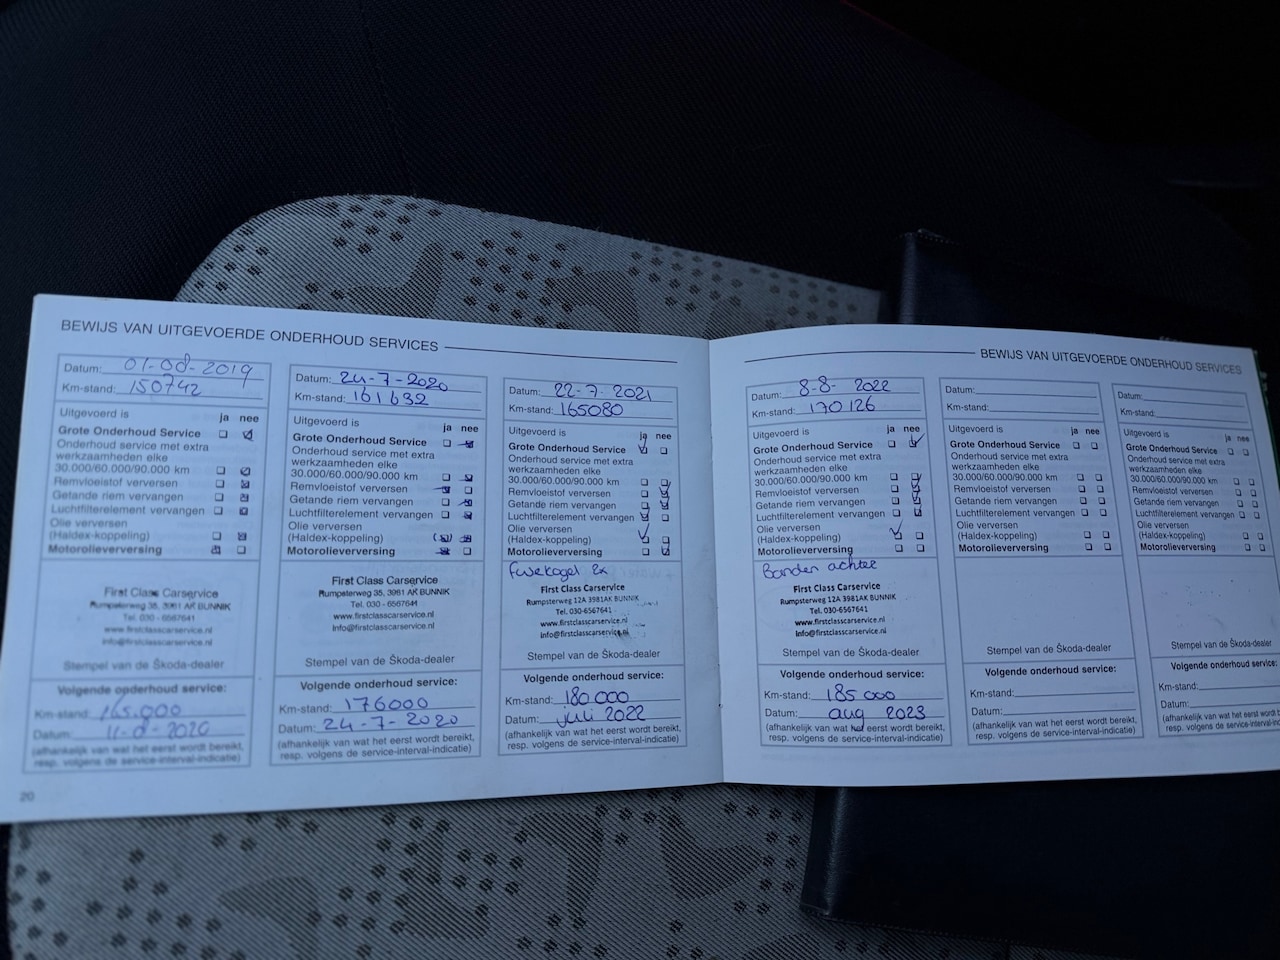 BEWIJS VAN UITGEVOERDE ONDERHOUD SERVICES
Datum: 01-08-2019
Km-stand: 150742
Uitgevoerd is ja nee
Grote Onderhoud Service
Onderhoud service met extra
werkzaamheden elke
30.000/60.000/90.000 km
Remvloeistof verversen
Getande riem vervangen
Luchtfilterelement vervangen
Olie verversen
(Haldex-koppeling)
Motorolieverversing
First Class Carservice
Rumpsterweg 35, 3981 AK BUNNIK
Tel. 030 - 6567641
www.firstclasscarservice.nl
info@firstclasscarservice.nl
Stempel van de Škoda-dealer
Volgende onderhoud service:
Km-stand: 165.000
Datum:
(afhankelijk van wat het eerst wordt bereikt,
resp. volgens de service-interval-indicatie)
20
Datum: 24-7-2020
Km-stand: 161632
Uitgevoerd is ja nee
Grote Onderhoud Service
Onderhoud service met extra
werkzaamheden elke
30.000/60.000/90.000 km
Remvloeistof verversen
Getande riem vervangen
Luchtfilterelement vervangen
Olie verversen
(Haldex-koppeling)
Motorolieverversing
First Class Carservice
Rumpsterweg 35, 3981 AK BUNNIK
Tel. 030 - 6567641
www.firstclasscarservice.nl
info@firstclasscarservice.nl
Stempel van de Škoda-dealer
Volgende onderhoud service:
Km-stand: 176000
Datum: 24-7-2020
(afhankelijk van wat het eerst wordt bereikt,
resp. volgens de service-interval-indicatie)
Datum: 22-7-2021
Km-stand: 165080
Uitgevoerd is ja nee
Grote Onderhoud Service
Onderhoud service met extra
werkzaamheden elke
30.000/60.000/90.000 km
Remvloeistof verversen
Getande riem vervangen
Luchtfilterelement vervangen
Olie verversen
(Haldex-koppeling)
Motorolieverversing
Fuseekogel 2x
First Class Carservice
Rumpsterweg 12A 3981AK BUNNIK
Tel. 030-6567641
www.firstclasscarservice.nl
info@firstclasscarservice.nl
Stempel van de Škoda-dealer
Volgende onderhoud service:
Km-stand: 180.000
Datum: juli 2022
(afhankelijk van wat het eerst wordt bereikt,
resp. volgens de service-interval-indicatie)
BEWIJS VAN UITGEVOERDE ONDERHOUD SERVICES
Datum: 8-8-2022
Km-stand: 170126
Uitgevoerd is ja nee
Grote Onderhoud Service
Onderhoud service met extra
werkzaamheden elke
30.000/60.000/90.000 km
Remvloeistof verversen
Getande riem vervangen
Luchtfilterelement vervangen
Olie verversen
(Haldex-koppeling)
Motorolieverversing
Banden achter
First Class Carservice
Rumpsterweg 12A 3981AK BUNNIK
Tel. 030-6567641
www.firstclasscarservice.nl
info@firstclasscarservice.nl
Stempel van de Škoda-dealer
Volgende onderhoud service:
Km-stand: 185.000
Datum: aug 2023
(afhankelijk van wat het eerst wordt bereikt,
resp. volgens de service-interval-indicatie)
Datum:
Km-stand:
Uitgevoerd is ja nee
Grote Onderhoud Service
Onderhoud service met extra
werkzaamheden elke
30.000/60.000/90.000 km
Remvloeistof verversen
Getande riem vervangen
Luchtfilterelement vervangen
Olie verversen
(Haldex-koppeling)
Motorolieverversing
Stempel van de Škoda-dealer
Volgende onderhoud service:
Km-stand:
Datum:
(afhankelijk van wat het eerst wordt bereikt,
resp. volgens de service-interval-indicatie)
Datum:
Km-stand:
Uitgevoerd is ja nee
Grote Onderhoud Service
Onderhoud service met extra
werkzaamheden elke
30.000/60.000/90.000 km
Remvloeistof verversen
Getande riem vervangen
Luchtfilterelement vervangen
Olie verversen
(Haldex-koppeling)
Motorolieverversing
Stempel van de Škoda-dealer
Volgende onderhoud service:
Km-stand:
Datum:
(afhankelijk van wat het eerst wordt
resp. volgens de service-interval-indicatie)